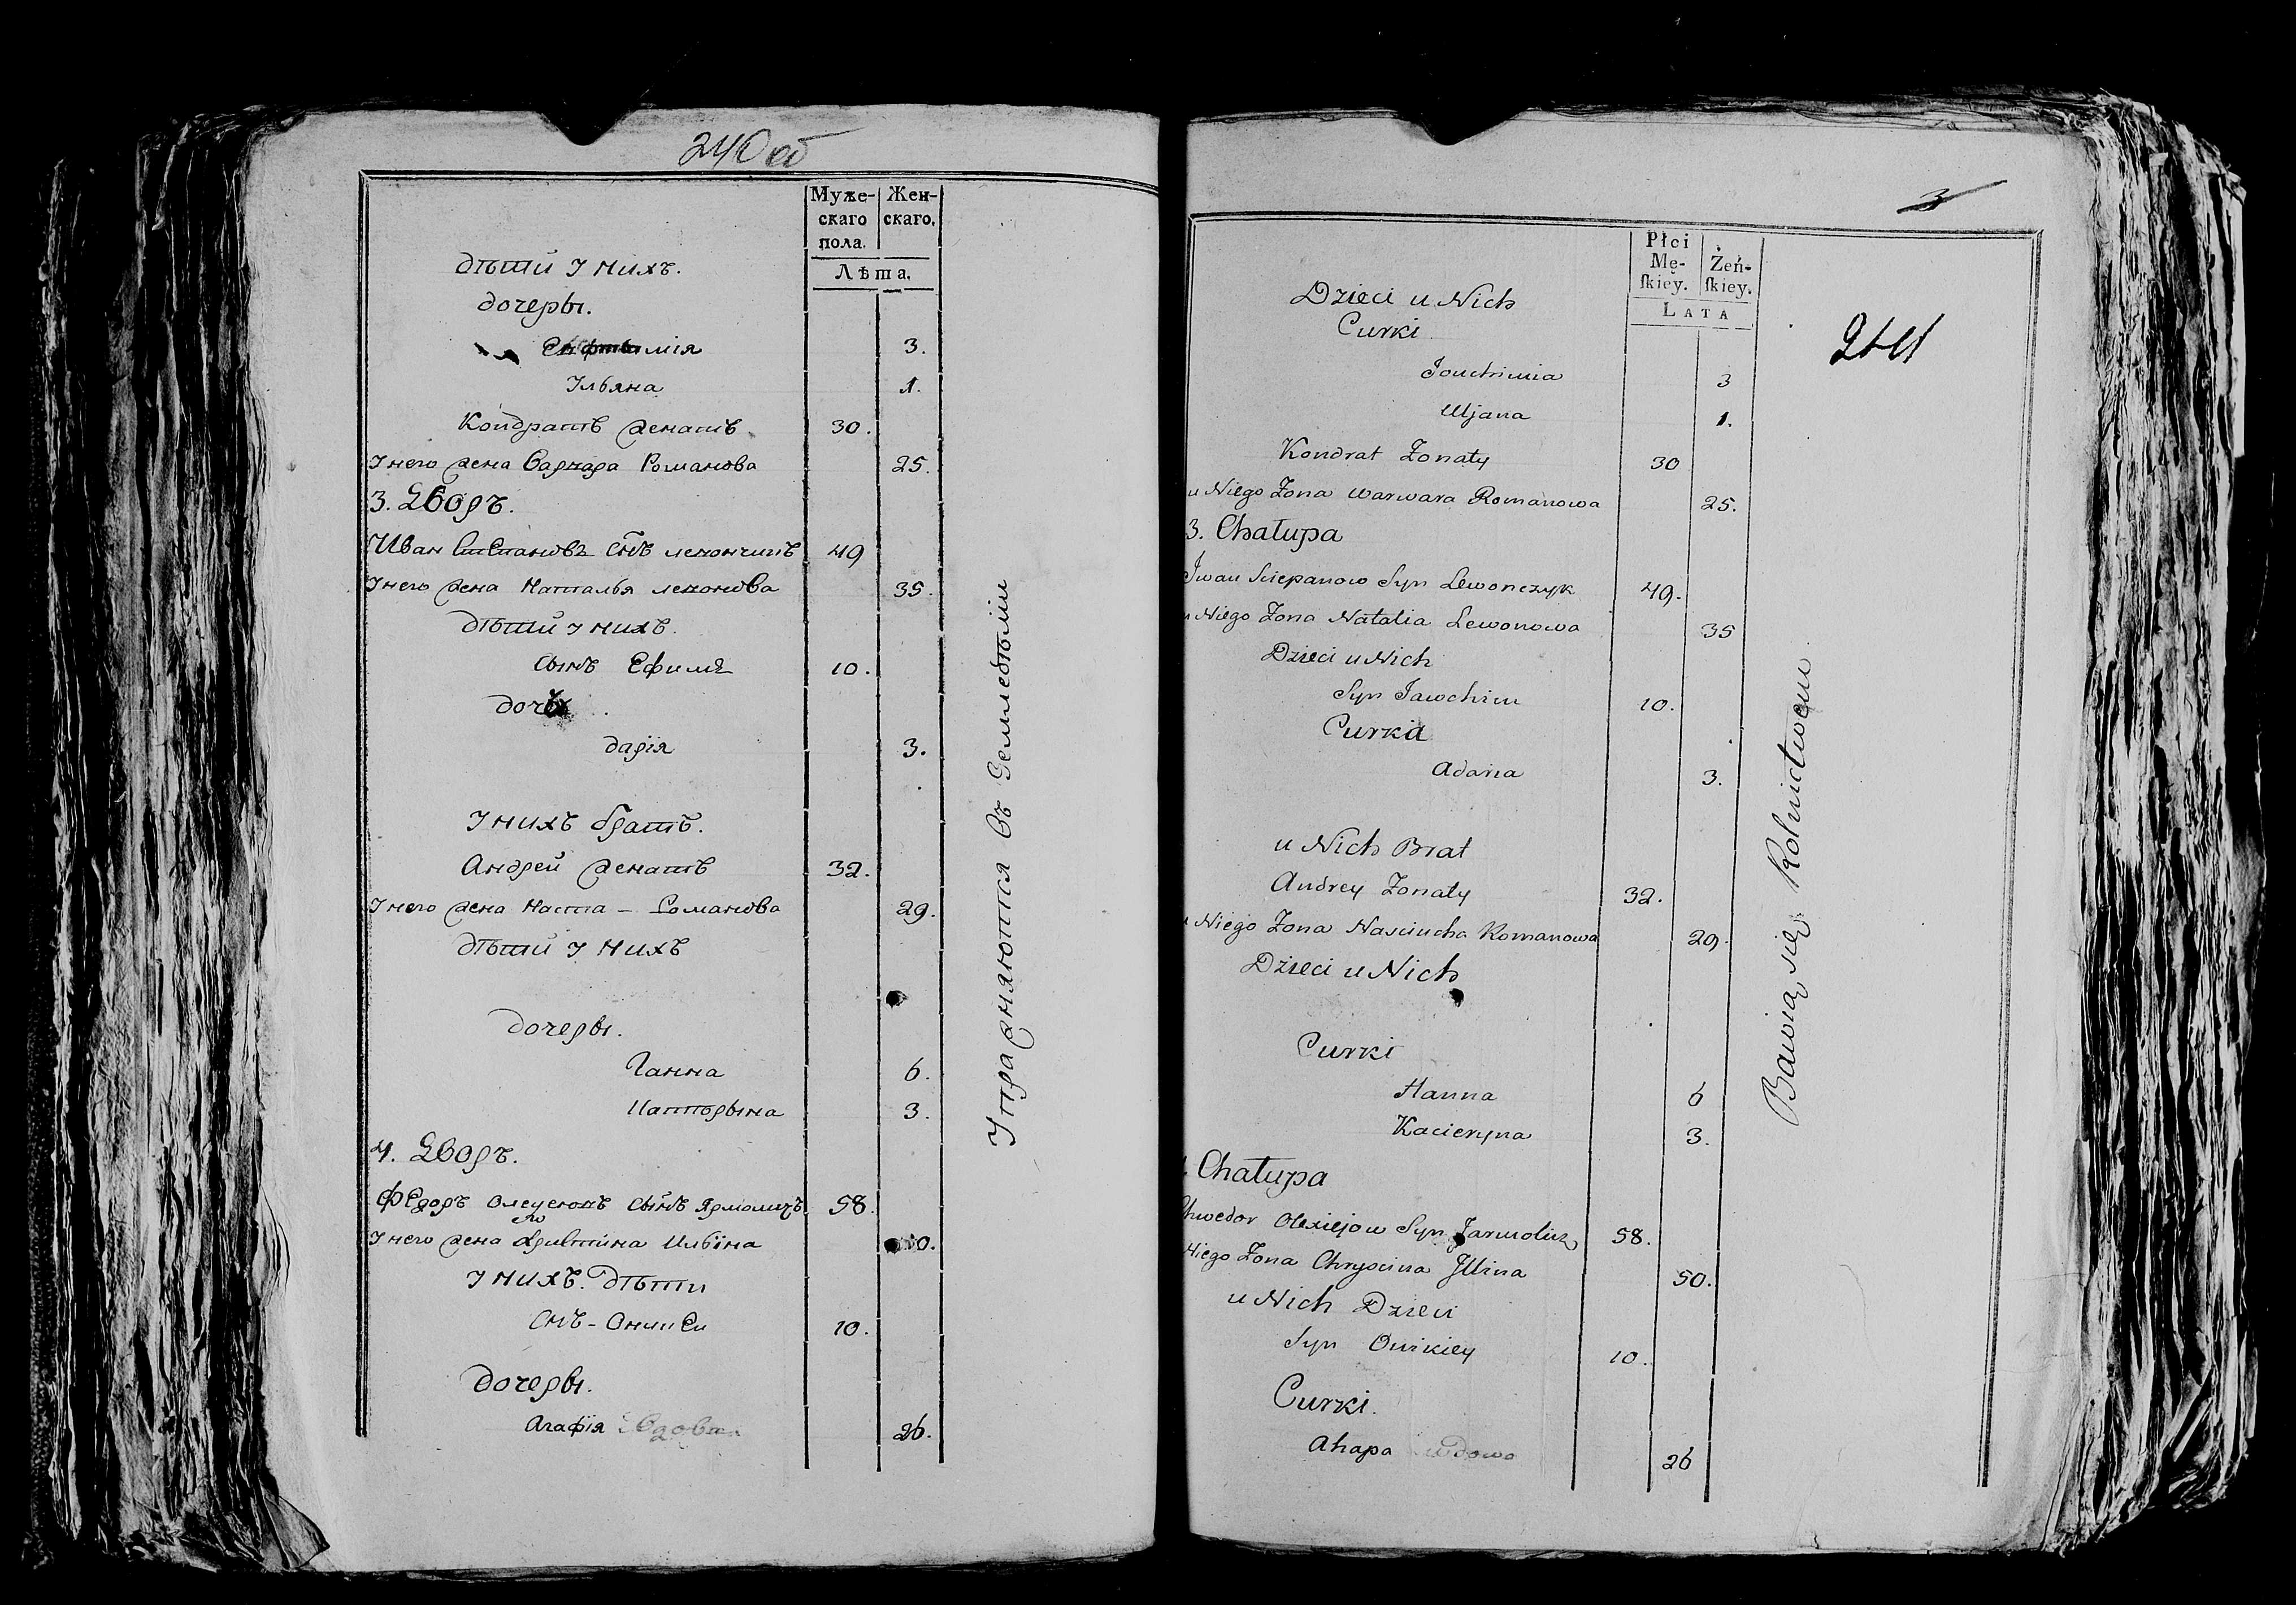 240 об
Муже-
скаго
пола.
Жен-
скаго.
Лѣта.
дѣтй у нихъ.
дочеры.
мія 3.
Ульяна 1.
Кондратъ женатъ 30.
У него жена Варвара Романова 25.
3. Дворъ.
Иван Степановъ Снъ левончикъ 49
У него жена Наталья левонова 35.
дѣтй у нихъ.
Сынъ Ефимъ 10.
дочь
дарія 3.
У нихъ братъ.
Андрей женатъ 32.
У него жена Наста – Романова 29.
дѣтй у нихъ
дочеры.
Ганна 6.
Катторына 3.
4. Дворъ.
Федоръ Сынъ Ярмоличъ 58.
У него жена Ильина
У нихъ. дѣти
Снъ - 10.
Дочеры.
Агафія Вдова 26.
Упражняются въ Земледѣліи
3
241
Płci
Mę-
ſkiey.
Żeń-
ſkiey.
LATA
Dzieci u Nich
Curki
Jouchimia 3
Uljana 1.
Kondrat Żonaty 30
u Niego Żona Warwara Romanowa 25.
3. Chałupa
Iwan Sciepanow Syn Lewonczyk 49.
u Niego Żona Natalia Lewonowa 35
Dzieci u Nich
Syn Jawchim 10.
Curka
Adaria 3.
u Nich Brat
Andrey Żonaty 32.
u Niego Żona Nasciucha Romanowa 29.
Dzieci u Nich
Curki
Hanna 6
Kacieryna 3.
Chałupa
Chwedor Olexiejow Syn Jarmolicz 58.
Niego Żona Chryscina Illina 50.
u Nich Dzieci
Syn Onikiey 10.
Curki.
Ahapa wdowa 26
Bawią się Rolnictwem